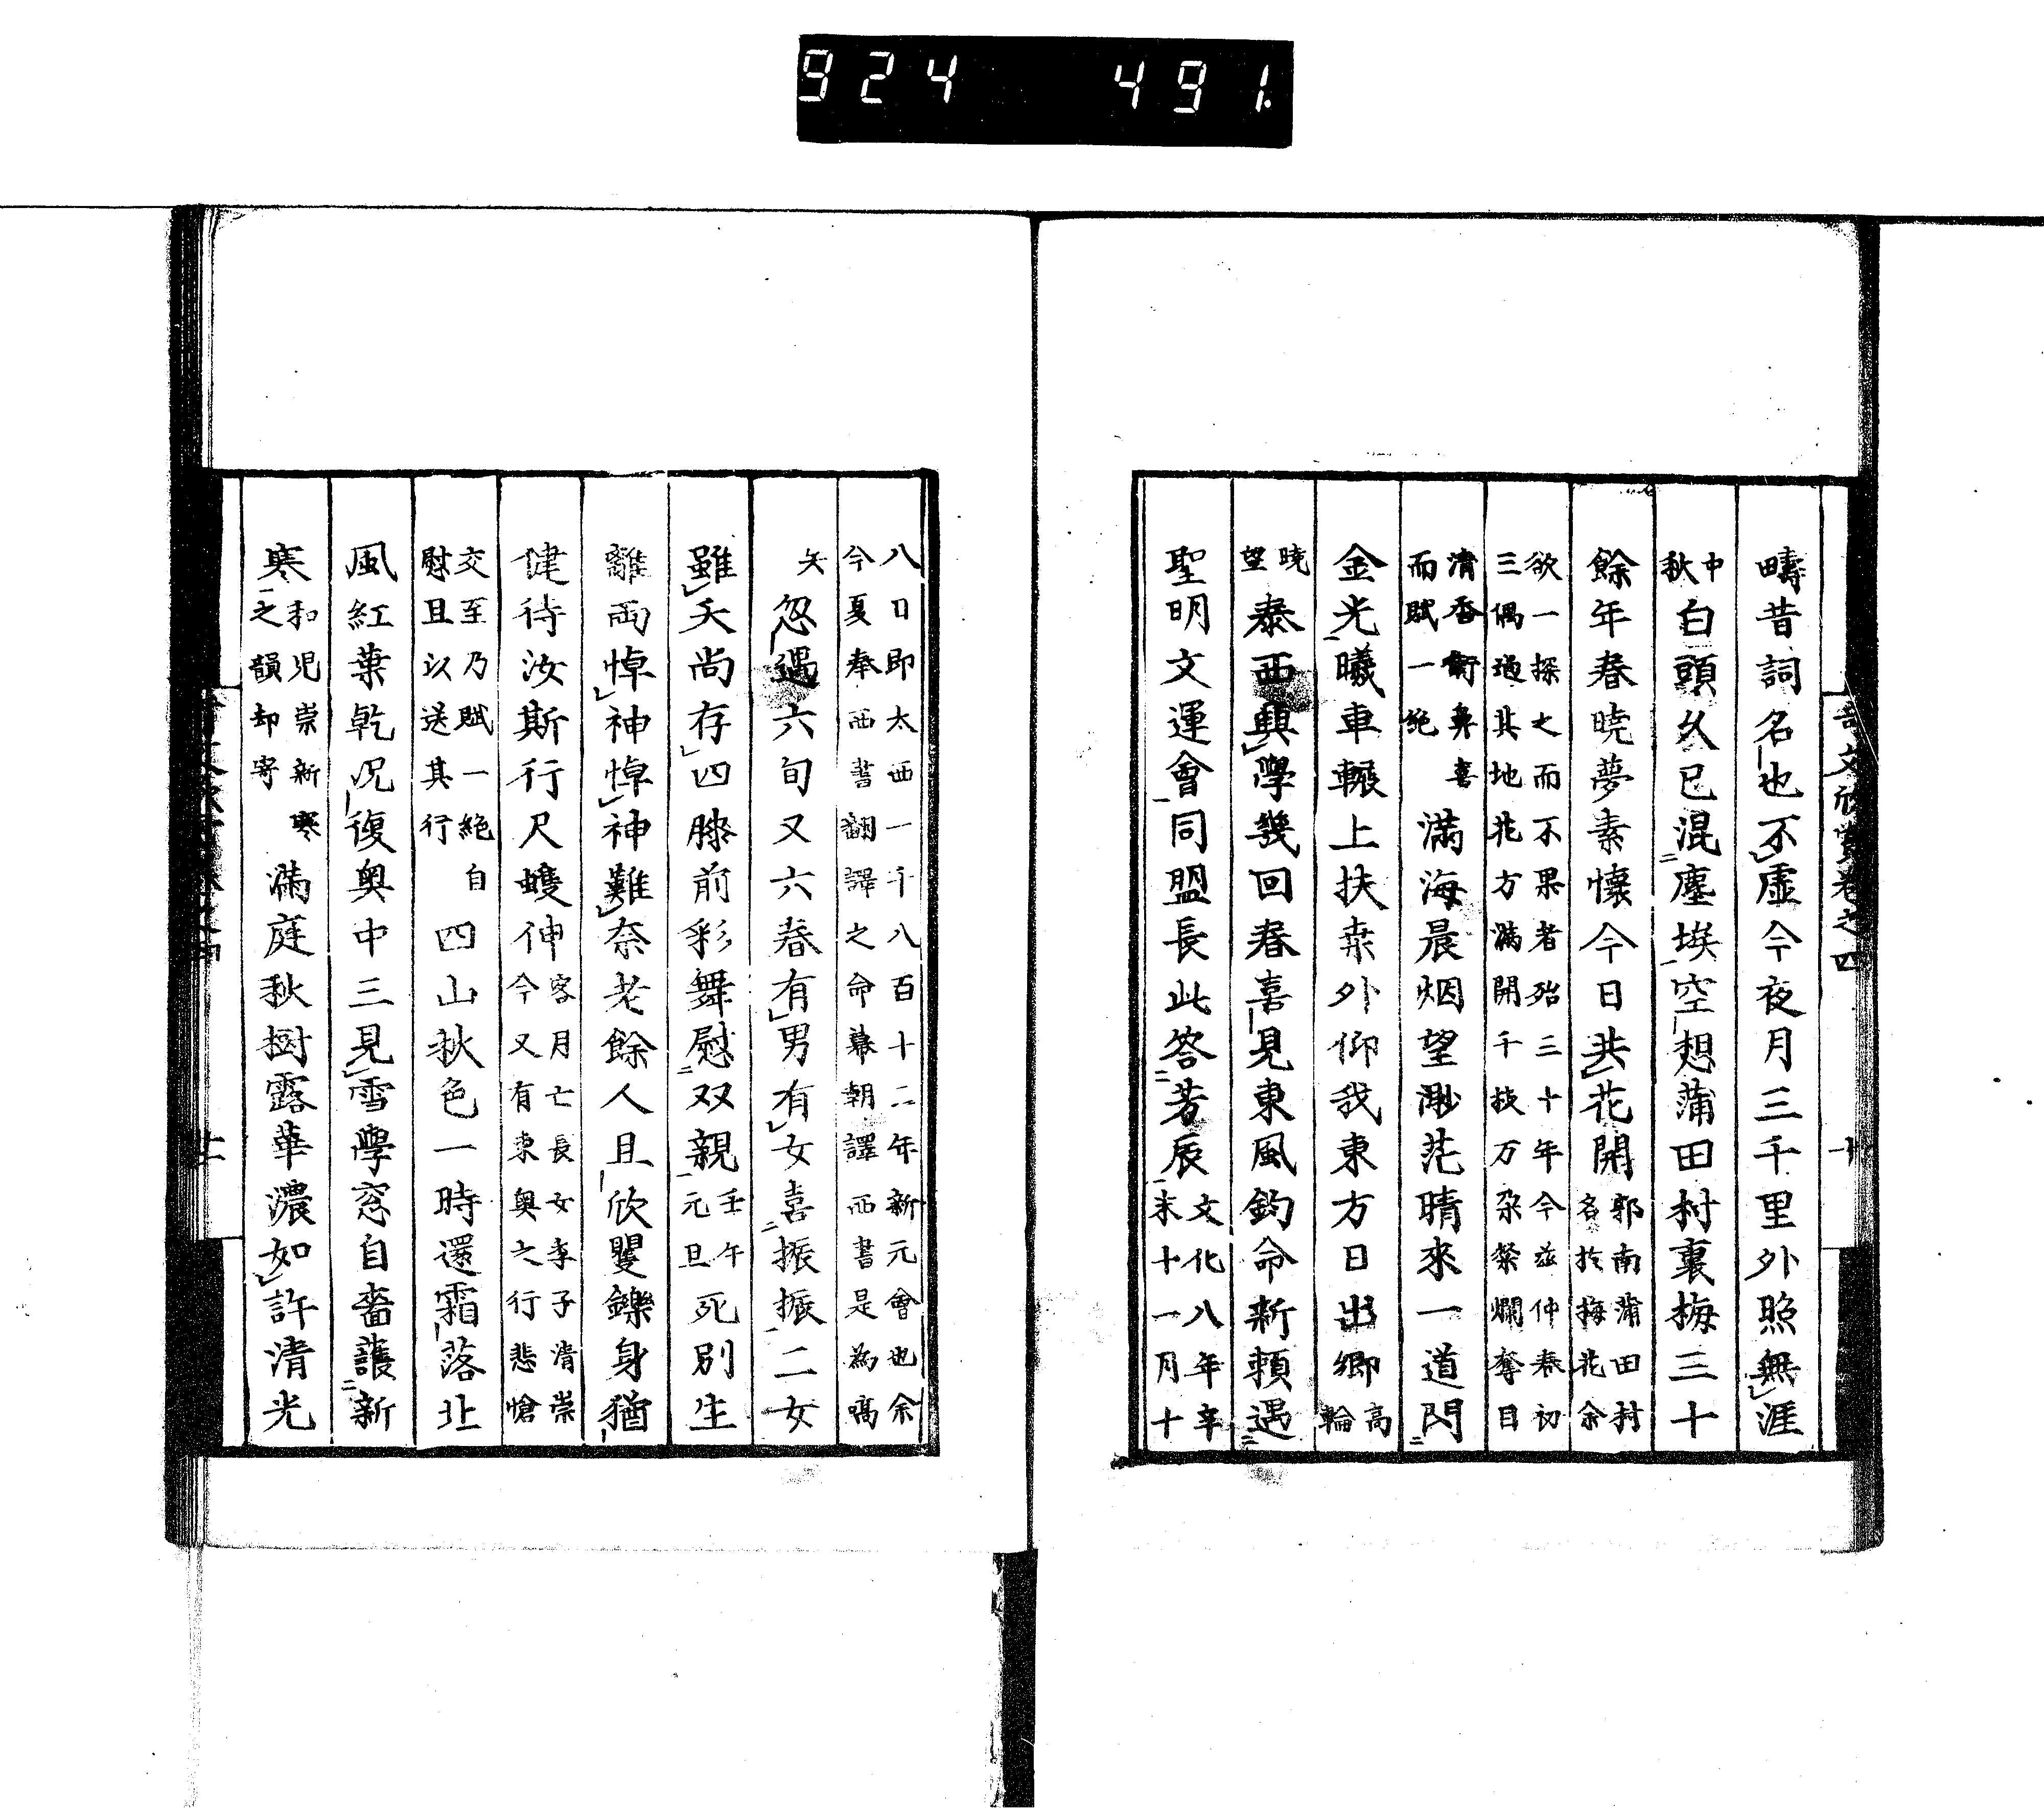 924 491.
奇文欣賞卷之四 十
疇昔詞名也不虛今夜月三千里外照無涯
中
秋
白頭久已混塵埃空想蒲田村裏梅三十
餘年春曉夢素懷今日共花開
郭南蒲田村
名於梅花余
欲一探之而不果者殆三十年今茲仲春初
三偶過其地花方滿開千枝万朶祭爛奪目
清香衝鼻喜
而賦一絶
滿海晨烟望渺茫晴來一道閃
金光曦車輾上扶桒外仰我東方日出鄉
高
輪
曉
望
泰西興學幾回春喜見東風鈞命新頼遇
聖明文運會同盟長此答芳辰
文化八年辛
未十一月十
八日即太西一千八百十二年新元會也余
今夏奉西書翻譯之命幕朝譯西書是為嚆
矢
忽遇六旬又六春有男有女喜振振二女
雖夭尚存四膝前彩舞慰双親
壬午
元旦
死別生
離両悼神悼神難奈老餘人且欣矍鑠身猶
健待汝斯行尺蠖伸
客月亡長女季子清崇
今又有東奥之行悲愴
交至乃賦一絶自
慰且以送其行
四山秋色一時還霜落北
風紅葉乾况復奥中三見雪學窓自嗇護新
寒
和児崇新寒
之韻却寄
滿庭秋樹露華濃如許清光